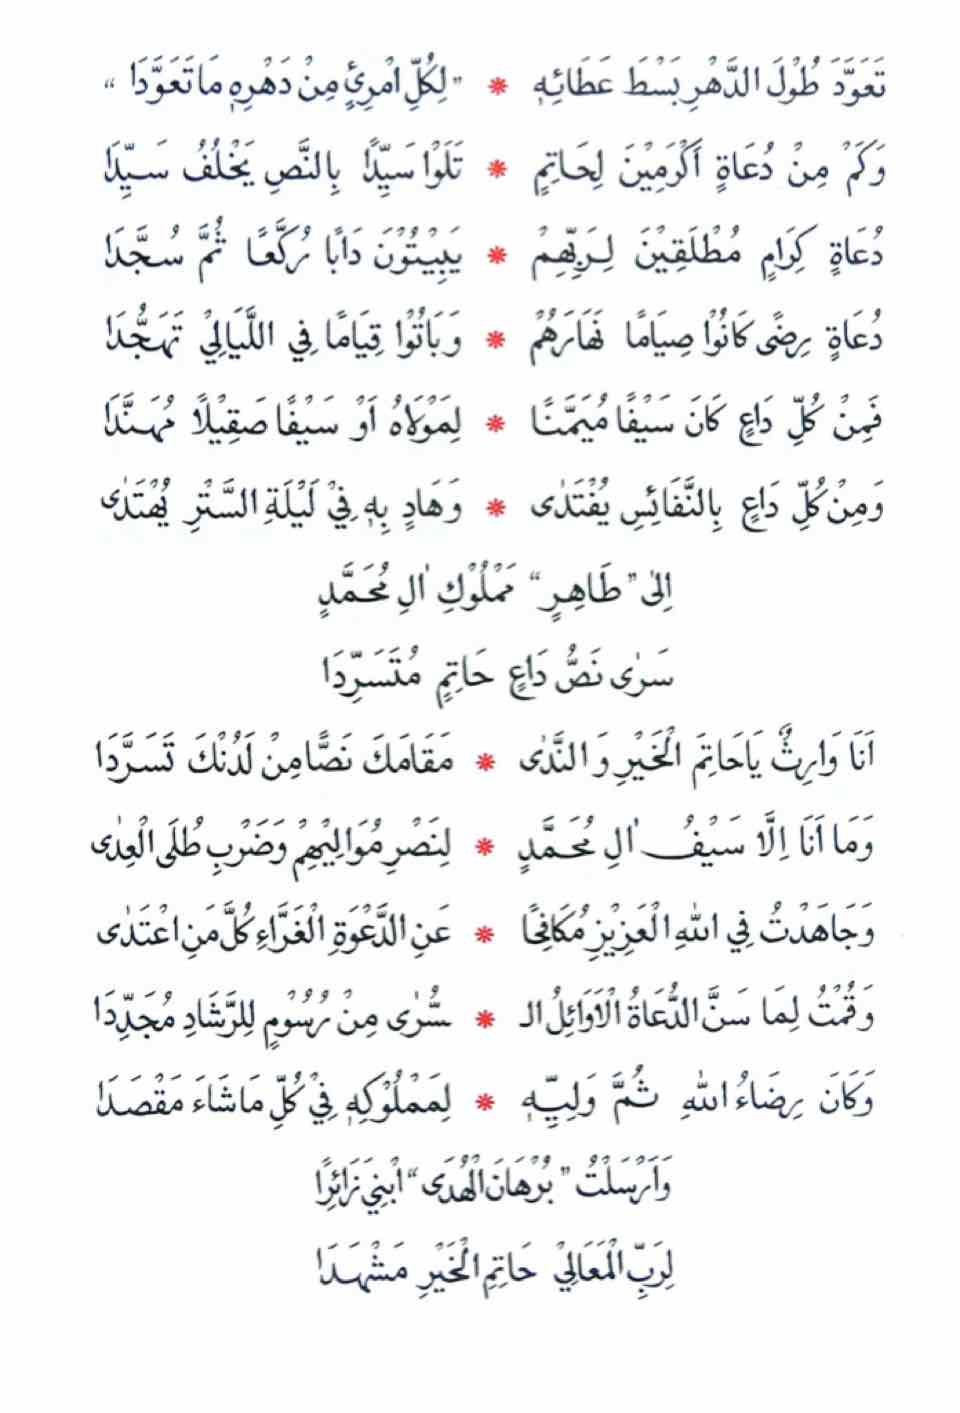 تَعَوَّدَ طُوْلَ الدَّهْرِ بَسْطَ عَطَائِهٖ * "لِكُلِّ امْرِئٍ مِنْ دَهْرِهٖ مَا تَعَوَّدَا"
وَكَمْ مِنْ دُعَاةٍ أَكْرَمِيْنَ لِحَاتِمٍ * تَلَوْا سَيِّدًا بِالنَّصِ يَخْلُفُ سَيِّدَا
دُعَاةٍ كِرَامٍ مُطْلَقِيْنَ لِرَبِّهِمْ * يَبِيْتُوْنَ دَابًا رُكَّعًا ثُمَّ سُجَّدَا
دُعَاةٍ رِضًى كَانُوْا صِيَامًا نَهَارَهُمْ * وَبَاتُوْا قِيَامًا فِي اللَّيَالِيْ تَهَجُّدَا
فَمِنْ كُلِّ دَاعٍ كَانَ سَيْفًا مُيَمَّنًا * لِمَوْلَاهُ اَوْ سَيْفًا صَقِيْلًا مُهَنَّدَا
وَمِنْ كُلِّ دَاعٍ بِالنَّفَائِسِ يُفْتَدٰى * وَهَادٍ بِهٖ فِيْ لَيْلَةِ السَّتْرِ يُهْتَدٰى
اِلٰى "طَاهِرٍ" مَمْلُوْكِ اٰلِ مُحَمَّدٍ
سَرٰى نَصُّ دَاعٍ حَاتِمٍ مُتَسَرِّدَا
اَنَا وَارِثٌ يَا حَاتِمَ الْخَيْرِ وَ النَّدٰى * مَقَامَكَ نَصًّا مِنْ لَدُنْكَ تَسَرَّدَا
وَمَا اَنَا اِلَّا سَيْفُ اٰلِ مُحَمَّدٍ * لِنَصْرِ مُوَالِيْهِمْ وَضَرْبِ طُلَى الْعِدٰى
وَجَاهَدْتُ فِي اللهِ الْعَزِيْزِ مُكَافِحًا * عَنِ الدَّعْوَةِ الْغَرَّاءِ كُلَّ مَنِ اعْتَدٰى
وَقُمْتُ لِمَا سَنَّ الدُّعَاةُ الْاَوَائِلُ الـ * ـسُّرٰى مِنْ رُسُوْمٍ لِلرَّشَادِ مُجَدِّدَا
وَكَانَ رِضَاءُ اللهِ ثُمَّ وَلِيِّهٖ * لِمَمْلُوْكِهٖ فِيْ كُلِّ مَا شَاءَ مَقْصَدَا
وَاَرْسَلْتُ "بُرْهَانَ الْهُدَى" ابْنِيَ زَائِرًا
لِرَبِّ الْمَعَالِيْ حَاتِمِ الْخَيْرِ مَشْهَدَا